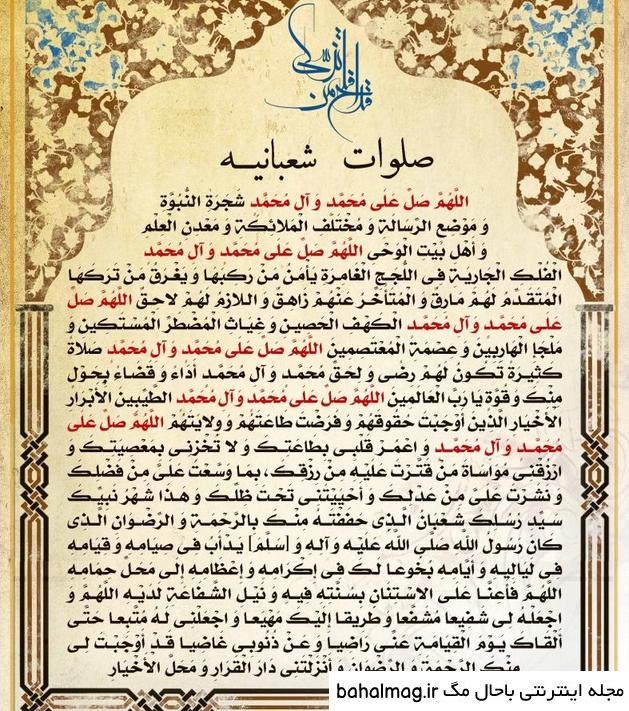 قد أفلح من تزکّی
صلوات شعبانیه
اللَّهُمَّ صَلِّ عَلَى مُحَمَّدٍ وَ آلِ مُحَمَّدٍ شَجَرَةِ النُّبُوَّةِ
وَ مَوْضِعِ الرِّسَالَةِ وَ مُخْتَلَفِ الْمَلائِكَةِ وَ مَعْدِنِ الْعِلْمِ
وَ أَهْلِ بَيْتِ الْوَحْيِ اللَّهُمَّ صَلِّ عَلَى مُحَمَّدٍ وَ آلِ مُحَمَّدٍ
الْفُلْكِ الْجَارِيَةِ فِي اللُّجَجِ الْغَامِرَةِ يَأْمَنُ مَنْ رَكِبَهَا وَ يَغْرَقُ مَنْ تَرَكَهَا
الْمُتَقَدِّمُ لَهُمْ مَارِقٌ وَ الْمُتَأَخِّرُ عَنْهُمْ زَاهِقٌ وَ اللازِمُ لَهُمْ لاحِقٌ اللَّهُمَّ صَلِّ
عَلَى مُحَمَّدٍ وَ آلِ مُحَمَّدٍ الْكَهْفِ الْحَصِينِ وَ غِيَاثِ الْمُضْطَرِّ الْمُسْتَكِينِ وَ
مَلْجَإِ الْهَارِبِينَ وَ عِصْمَةِ الْمُعْتَصِمِينَ اللَّهُمَّ صَلِّ عَلَى مُحَمَّدٍ وَ آلِ مُحَمَّدٍ صَلاةً
كَثِيرَةً تَكُونُ لَهُمْ رِضًى وَ لِحَقِّ مُحَمَّدٍ وَ آلِ مُحَمَّدٍ أَدَاءً وَ قَضَاءً بِحَوْلٍ
مِنْكَ وَ قُوَّةٍ يَا رَبَّ الْعَالَمِينَ اللَّهُمَّ صَلِّ عَلَى مُحَمَّدٍ وَ آلِ مُحَمَّدٍ الطَّيِّبِينَ الْأَبْرَارِ
الْأَخْيَارِ الَّذِينَ أَوْجَبْتَ حُقُوقَهُمْ وَ فَرَضْتَ طَاعَتَهُمْ وَ وِلايَتَهُمْ اللَّهُمَّ صَلِّ عَلَى
مُحَمَّدٍ وَ آلِ مُحَمَّدٍ وَ اعْمُرْ قَلْبِي بِطَاعَتِكَ وَ لا تُخْزِنِي بِمَعْصِيَتِكَ وَ
ارْزُقْنِي مُوَاسَاةَ مَنْ قَتَّرْتَ عَلَيْهِ مِنْ رِزْقِكَ، بِمَا وَسَّعْتَ عَلَيَّ مِنْ فَضْلِكَ
وَ نَشَرْتَ عَلَيَّ مِنْ عَدْلِكَ وَ أَحْيَيْتَنِي تَحْتَ ظِلِّكَ وَ هَذَا شَهْرُ نَبِيِّكَ
سَيِّدِ رُسُلِكَ شَعْبَانُ الَّذِي حَفَفْتَهُ مِنْكَ بِالرَّحْمَةِ وَ الرِّضْوَانِ الَّذِي
كَانَ رَسُولُ اللَّهِ صَلَّى اللَّهُ عَلَيْهِ وَ آلِهِ وَ [سَلَّمَ] يَدْأَبُ فِي صِيَامِهِ وَ قِيَامِهِ
فِي لَيَالِيهِ وَ أَيَّامِهِ بُخُوعا لَكَ فِي إِكْرَامِهِ وَ إِعْظَامِهِ إِلَى مَحَلِّ حِمَامِهِ
اللَّهُمَّ فَأَعِنَّا عَلَى الاسْتِنَانِ بِسُنَّتِهِ فِيهِ وَ نَيْلِ الشَّفَاعَةِ لَدَيْهِ اللَّهُمَّ وَ
اجْعَلْهُ لِي شَفِيعا مُشَفَّعا وَ طَرِيقا إِلَيْكَ مَهْيَعا وَ اجْعَلْنِي لَهُ مُتَّبِعا حَتَّى
أَلْقَاكَ يَوْمَ الْقِيَامَةِ عَنِّي رَاضِيا وَ عَنْ ذُنُوبِي غَاضِيا قَدْ أَوْجَبْتَ لِي
مِنْكَ الرَّحْمَةَ وَ الرِّضْوَانَ وَ أَنْزَلْتَنِي دَارَ الْقَرَارِ وَ مَحَلَّ الْأَخْيَارِ
مجله اینترنتی باحال مگ bahalmag.ir